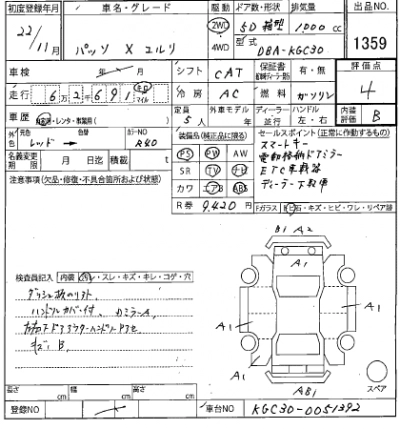 初度登録年月 車名・グレード 駆動 ドア数・形状 排気量 出品NO.
22/11月 パッソ X ユルリ 2WD 4WD 5D 箱型 1000 cc
型式 DBA-KGC30 1359
車検 年 月 シフト CAT 保証書 有・無 評価点
走行 62691 km マイル 冷房 AC 燃料 ガソリン 4
車歴 自家用・レンタ・事業用 定員 5人 外車モデル 年 ディーラー 並行 ハンドル 左・右 内装評価 B
外色 元色 レッド → カラーNO R40
装備品(純正品に限る)
セールスポイント(正常に作動するもの)
名義変更期限 月 日迄 積載 t
PS PW AW
SR TV ナビ
カワ エアB ABS
スマートキー
電動格納ドアミラー
ETC車載器
ディーラー下取車
注意事項(欠品・修復・不具合箇所および状態)
R券 9,420円
Fガラス 飛石・キズ・ヒビ・ワレ・リペア跡
B1 A2
A1
検査員記入 内装 汚レ・スレ・キズ・キレ・コゲ・穴
ハンドルカバー付
キズ B
A1 A1
A1 A1
AB1
スペア
長さ cm 幅 cm 高さ cm
登録NO 車台NO KGC30-0051392